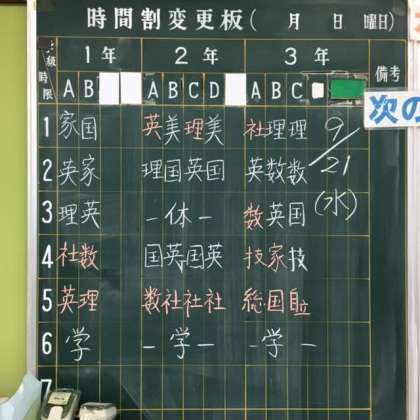 時間割変更板(　月　日　曜日)
級
時限
1年 2年 3年 備考
A B A B C D A B C
次の
1 家国 英美理美 社理理 9/21
2 英家 理国英国 英数数 (水)
3 理英 -体- 数英国
4 社数 国英国英 技家技
5 英理 数社社社 総国自位
6 学 -学- -学-
7